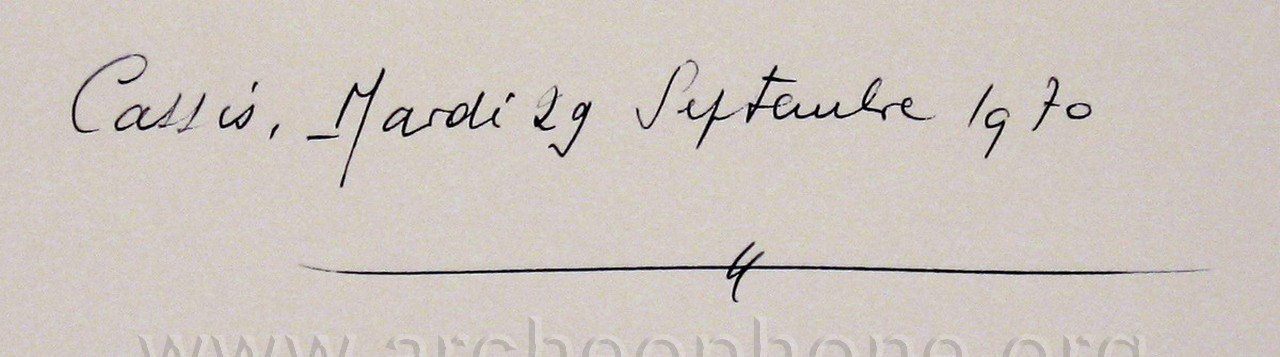 Cassis, Mardi 29 Septembre 1970
www.archeophone.org